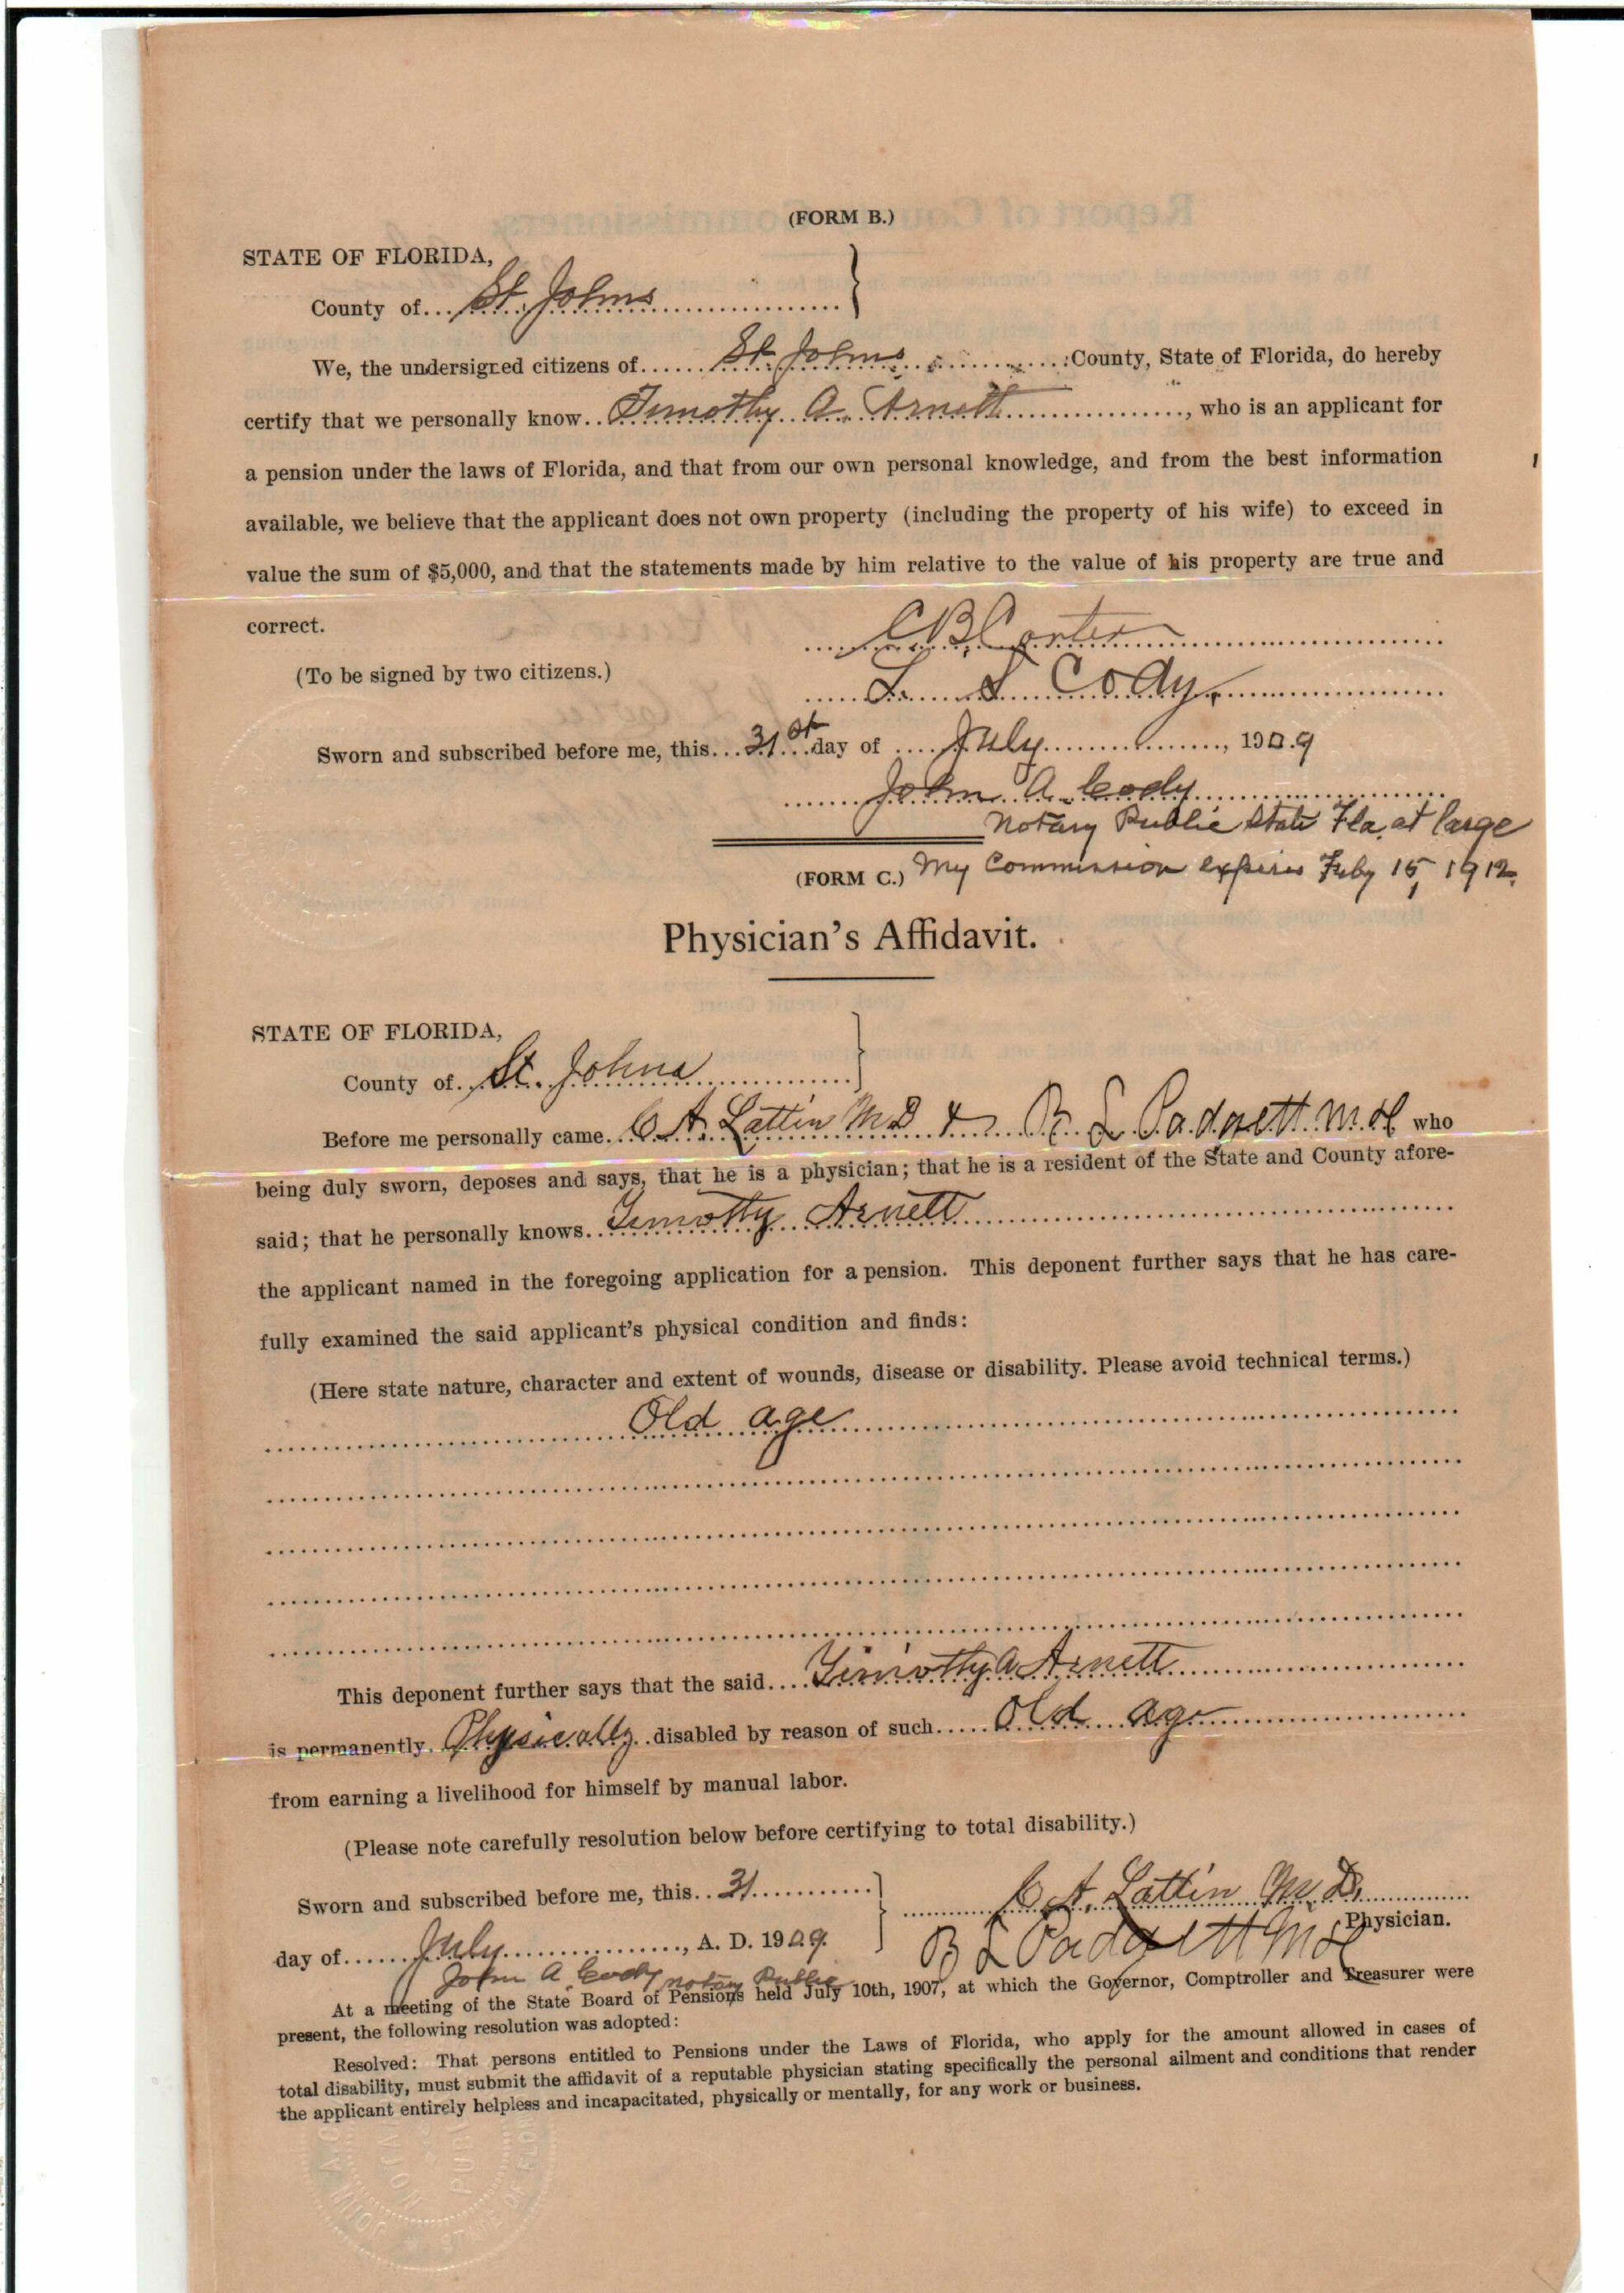 (FORM B.)
STATE OF FLORIDA,
County of St. Johns
We, the undersigned citizens of St. Johns County, State of Florida, do hereby
certify that we personally know Timothy A. Arnett, who is an applicant for
a pension under the laws of Florida, and that from our own personal knowledge, and from the best information
available, we believe that the applicant does not own property (including the property of his wife) to exceed in
value the sum of $5,000, and that the statements made by him relative to the value of his property are true and
correct.
C B Carter
(To be signed by two citizens.)
L. S Cody.
Sworn and subscribed before me, this 31st day of July, 1909
John A. Cody
Notary Public State Fla. at large
(FORM C.) My Commission expires Feby 15, 1912.
Physician's Affidavit.
STATE OF FLORIDA,
County of St. Johns
Before me personally came C A. Lattin MD & B L Padgett M.d who
being duly sworn, deposes and says, that he is a physician; that he is a resident of the State and County afore-
said; that he personally knows Timothy Arnett
the applicant named in the foregoing application for a pension. This deponent further says that he has care-
fully examined the said applicant's physical condition and finds:
(Here state nature, character and extent of wounds, disease or disability. Please avoid technical terms.)
Old age
This deponent further says that the said Timothy A Arnett
is permanently Physically disabled by reason of such Old age
from earning a livelihood for himself by manual labor.
(Please note carefully resolution below before certifying to total disability.)
Sworn and subscribed before me, this 31
C A. Lattin M.D.
Physician.
day of July, A. D. 1909.
B L Padgett Md
John A Cody notary Public
At a meeting of the State Board of Pensions held July 10th, 1907, at which the Governor, Comptroller and Treasurer were
present, the following resolution was adopted:
Resolved: That persons entitled to Pensions under the Laws of Florida, who apply for the amount allowed in cases of
total disability, must submit the affidavit of a reputable physician stating specifically the personal ailment and conditions that render
the applicant entirely helpless and incapacitated, physically or mentally, for any work or business.